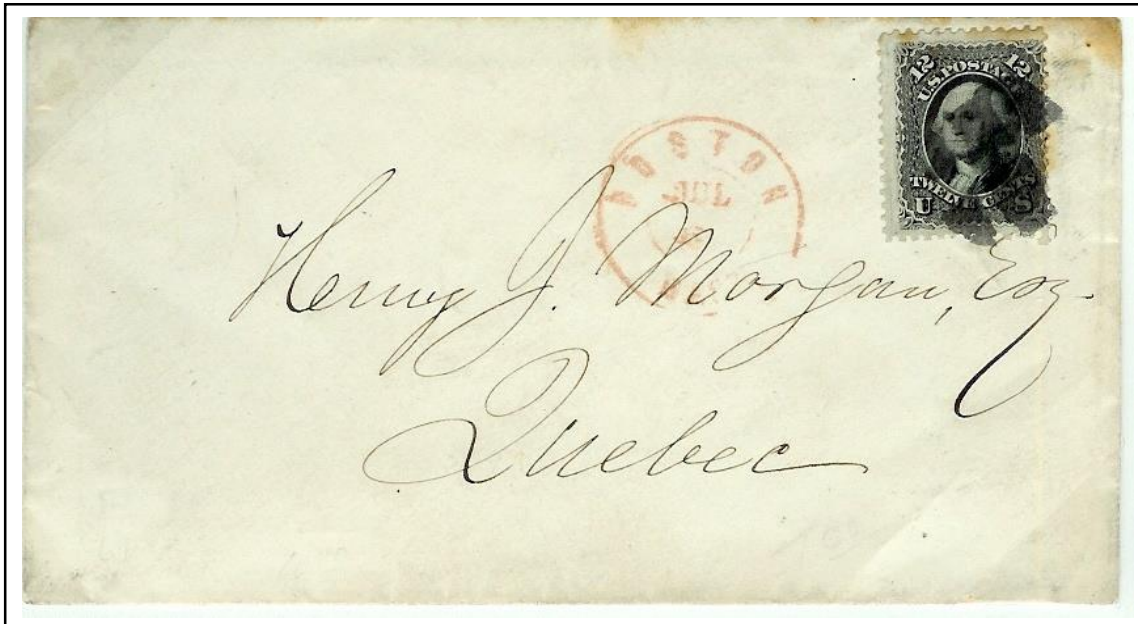 12 12
U.S. POSTAGE
TWELVE CENTS
U S
BOSTON
JUL
Henry J. Morgan, Esq.
Quebec